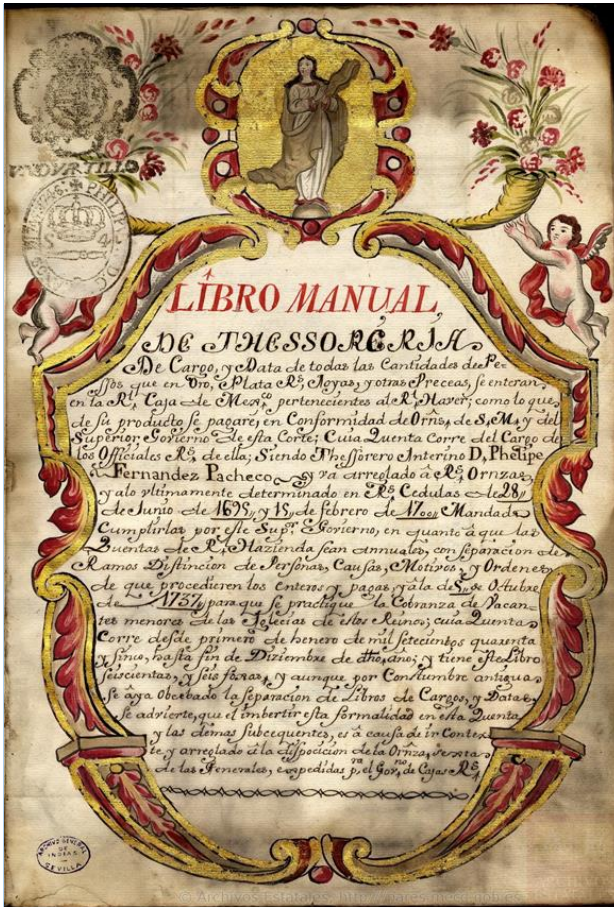 UN QUARTILLO
PHILIP. V. D. G.
LIBRO MANUAL
DE THESSORERIA
De Cargo, y Data de todas las Cantidades de Pe-
ssos que en Oro, Plata Rs. Joyas, y otras Preceas, se enteran
en la Rl. Caja de Mexco. pertenecientes de Rl. Haver; como lo que
de su producto se pagare, en Conformidad de Orns, de S, M, y del
Superior Govierno de esta Corte; Cuia Quenta Corre del Cargo de
los Officiales Rs. de ella; Siendo Thessorero Interino D, Phelipe
Fernandez Pacheco y va arreglado â Rs. Ornzas
y alo vltimamente determinado en Rs. Cedulas de 28,,
de Junio de 1695,, y 15,, de febrero de 1700,, Mandada
Cumplirlas por este Supr. Govierno, en quanto â que las
Quentas de Rl. Hazienda sean annuales, con separacion de
Ramos Distincion de Personas, Causas, Motivos, y Ordenes
de que procedieren los enteros y pagas, y âla de 5,, de Octubre
de 1737,, para que se practique la Cobranza de Vacan-
tes menores de las Iglecias de estos Reinos; cuia Quenta
Corre desde primero de henero de mil setecientos quarenta
y sinco, hasta fin de Diziembre de dho, año; y tiene este Libro
seiscientas, y seis foxas, y aunque por Constumbre antigua
se âya Obcebado la separacion de Libros de Cargos, y Datas,
se advierte, que el imbertir esta formalidad en esta Quenta
y las demas subcequentes, es â causa de ir Contex
te y arreglado â la dispocicion de la Ornza, sexta
de las Generales, expedidas pa. el Govno. de Cajas Rs.
ARCHIVO GENERAL
DE
INDIAS
SEVILLA
© Archivos Estatales, http://pares.mcu.es